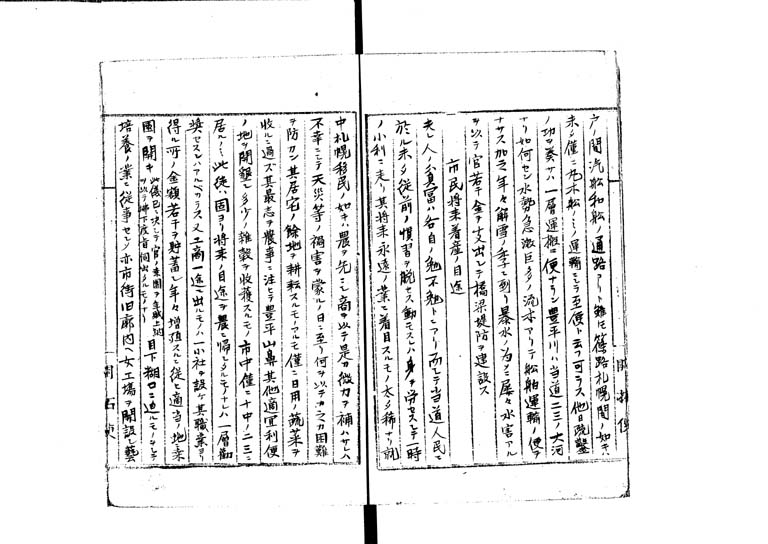 ノ間汽舩和舩ノ通路アリト雖モ篠路札幌間ノ如キハ
未タ僅ニ丸木舩ノミノ運輸ニシテ至便ト云フ可ラス他日疏鑿
ノ功ヲ奏セハ一層運搬ニ便ナラン豊平川ハ当道二三ノ大河
ナリ如何セン水勢急激巨多ノ流木アリテ舩舶運輸ノ便ヲ
ナサス加之年々解雪ノ季ニ到リ暴水ノ為メニ屡々水害アル
ヲ以テ官若干金ヲ支出シテ橋梁堤防ヲ建設ス
市民将来着産ノ目途
夫レ人ノ貧富ハ各自ノ勉不勉トニアリ而シテ当道人民ニ
於ル未タ従前ノ慣習ヲ脱セス動モスレハ身ヲ労セスシテ時
ノ小利ニ走リ其将来永遠ノ業ニ着目スルモノ太タ稀ナリ就
中札幌移民ノ如キハ農ヲ先ニシ商ヲ以テ是カ微力ヲ補ハサレハ
不幸ニシテ天災等ノ禍害ヲ蒙ルノ日ニ至リ何ヲ以テカ之カ困難
ヲ防カン其居宅ノ餘地ヲ耕耘スルモノアルモ僅ニ日用ノ蔬菜ヲ
収ルニ過ズ其最志ヲ農事ニ注ヒテ豊平山鼻其他適宜利便
ノ地ヲ開墾シ多少ノ雑穀ヲ収獲スルモノ市中僅ニ十中ノ二三ニ
居ルノミ此徒ハ固ヨリ将来ノ目途ヲ農ニ帰シタルモノナレハ一層勧
奨セスンハアルヘカラス又工商一途ニ出ルモノハ一小社ヲ設ケ其職業ヨリ
得ル所ノ金額若干ヲ貯蓄シ年々増殖スルニ従ヒ適当ノ地ニ桑
園ヲ開キ 目下糊口ニ迫ルモノヲシテ
培養ノ業ニ従事セシメ亦市街旧廓内ヘ女工場ヲ開設シ藝
開拓使
開拓使